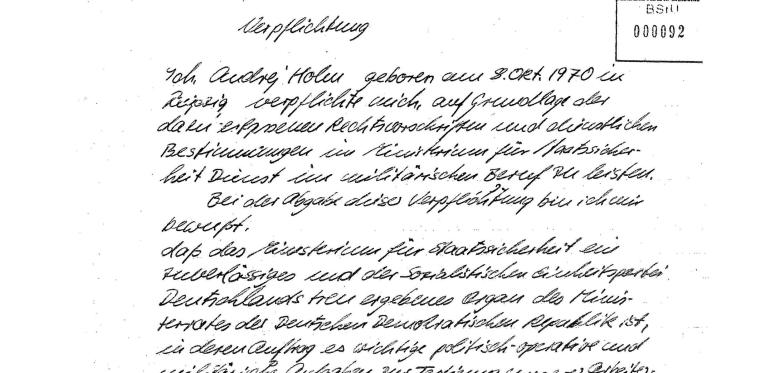 BStU
000092
Verpflichtung
Ich, Andrej Holm geboren am 8. Okt. 1970 in
Leipzig verpflichte mich, auf Grundlage der
dafür erlassenen Rechtsvorschriften und dienstlichen
Bestimmungen im Ministerium für Staatssicher-
heit Dienst im militärischen Beruf zu leisten.
Bei der Abgabe dieser Verpflichtung bin ich mir
bewußt,
daß das Ministerium für Staatssicherheit ein
zuverlässiges und der Sozialistischen Einheitspartei
Deutschlands treu ergebenes Organ des Minis-
terrates der Deutschen Demokratischen Republik ist,
in deren Auftrag es wichtige politisch-operative und
militärische Aufgaben zur